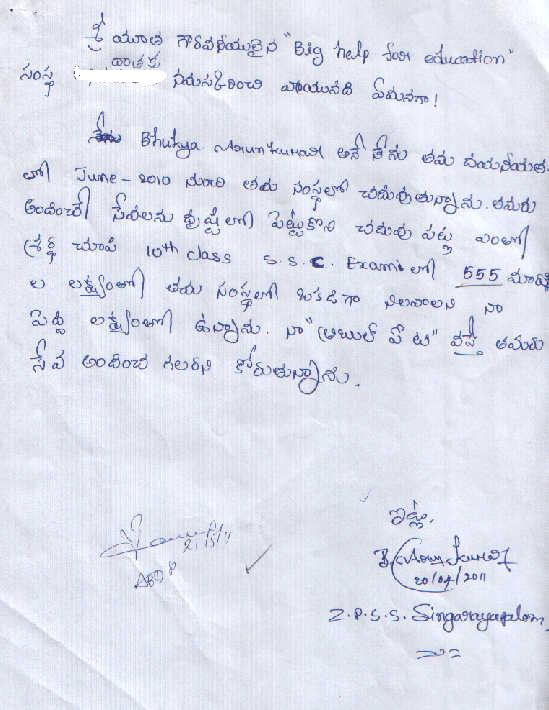 శ్రీ యుత గౌరవనీయులైన "Big help for education"
సంస్థ దాతకు నమస్కరించి వ్రాయునది ఏమనగా!
నేను Bhukya Arun kumar అనే నేను తమ దయనీయత
లో June - 2010 నుంచి తమ సంస్థలో చదువుతున్నాను. తమరు
అందించే సేవలను దృష్టిలో పెట్టుకొని చదువు పట్ల ఎంతో
శ్రద్ధ చూపి 10th class S.S.C. Exams లో 555 మార్కు
ల లక్ష్యంతో తమ సంస్థలో ఒకడిగా నిలవాలని నా
పెద్ద లక్ష్యంతో ఉన్నాను. నా వస్తే తమరు
సేవ అందించ గలరని కోరుతున్నాను.
ఇట్లు,
B. Arun kumar
20/04/2011
Z.P.S.S. Singarayapalem